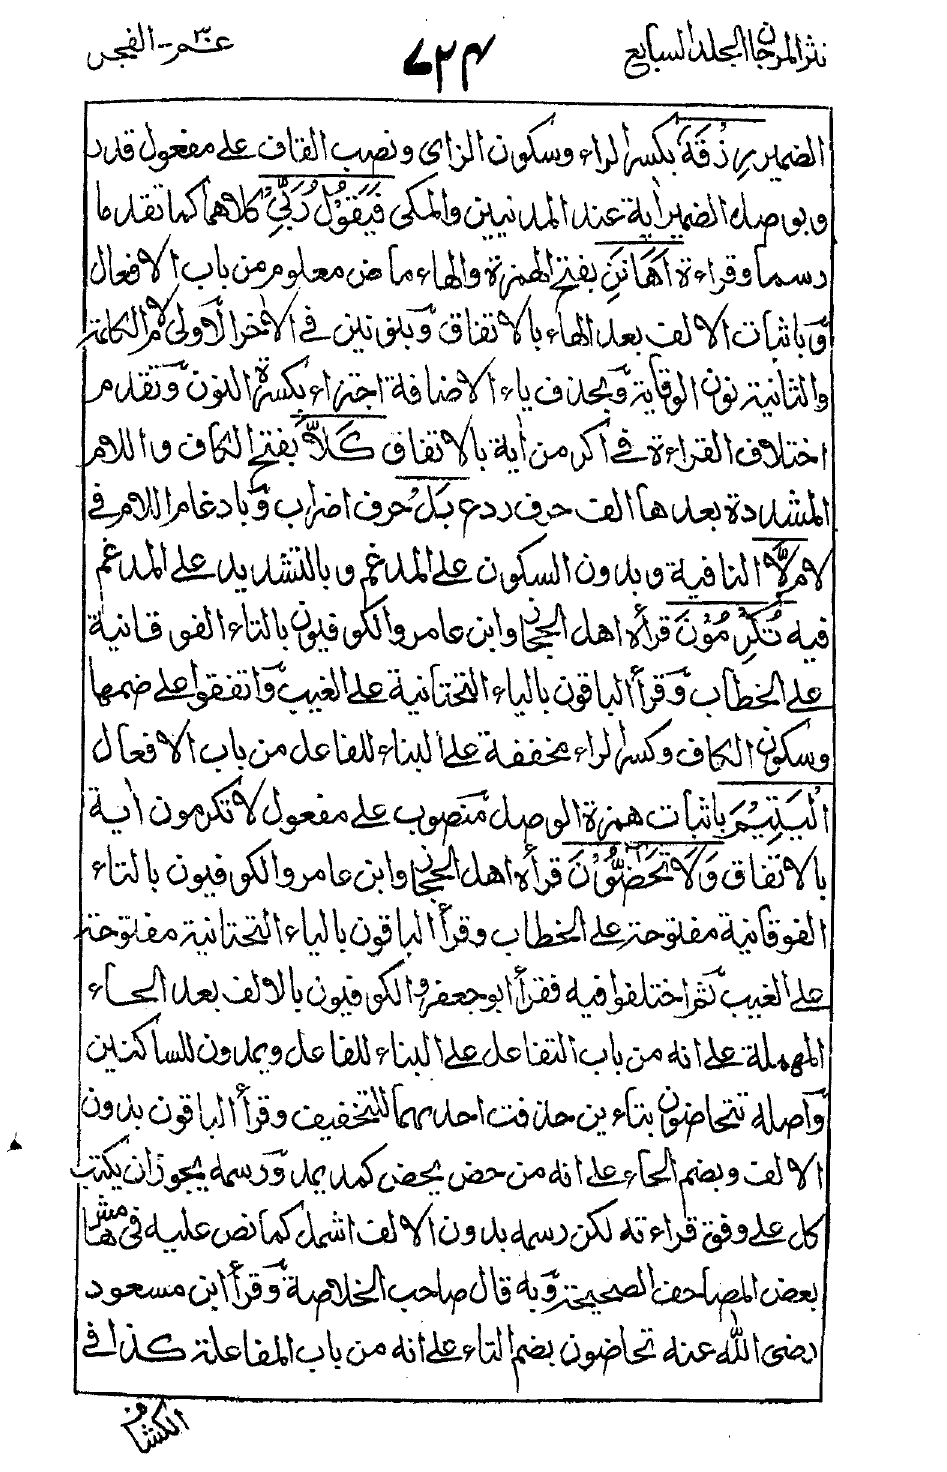 نثر المرجان الجلد السابع
٧٢٤
عمّ - الفجر
الضمير رِزْقَهٗ بكسر الراء وسكون الزاى ونصب القاف على مفعول قدر
وبوصل الضمير اٰية عند المدنيين والمكى فَيَقُوْلُ رَبِّيْ كلاهما كما تقدما
رسما وقراءة اَهَانَنِ بفتح الهمزة والهاء ماض معلوم من باب الافعال
وباثبات الالف بعد الهاء بالاتفاق وبنونين فى الاٰخر الاولى لام الكلمة
والثانية نون الوقاية وبحذف ياء الاضافة اجتزاء بكسرة النون وتقدم
اختلاف القراءة فى اكرمن اٰية بالاتفاق كَلَّا بفتح الكاف واللام
المشددة بعدها الف حرف ردع بَلْ حرف اضراب وبادغام اللام فى
لام لَّا النافية وبدون السكون على المدغم وبالتشديد على المدغم
فيه تُكْرِمُوْنَ قرأه اهل الحجاز وابن عامر والكوفيون بالتاء الفوقانية
على الخطاب وقرأ الباقون بالياء التحتانية على الغيب واتفقوا على ضمها
وسكون الكاف وكسر الراء مخففة على البناء للفاعل من باب الافعال
الْيَتِيْمَ باثبات همزة الوصل منصوب على مفعول لا تكرمون اٰية
بالاتفاق وَلَا تَحٰضُّوْنَ قرأه اهل الحجاز وابن عامر والكوفيون بالتاء
الفوقانية مفتوحة على الخطاب وقرأ الباقون بالياء التحتانية مفتوحة
على الغيب ثم اختلفوا فيه فقرأ ابو جعفر والكوفيون بالالف بعد الحاء
المهملة على انه من باب التفاعل على البناء للفاعل ويمدون للساكنين
واصله تتحاضون بتاءين حذفت احدىهما للتخفيف وقرأ الباقون بدون
الالف وبضم الحاء على انه من حض يحض كمد يمد ورسمه يجوز ان يكتب
كل على وفق قراءته لكن رسمه بدون الالف اشمل كما نص عليه فى هامش
بعض المصاحف الصحيحة وبه قال صاحب الخلاصة وقرأ ابن مسعود
رضى الله عنه تحاضون بضم التاء على انه من باب المفاعلة كذا فى
الكشاف